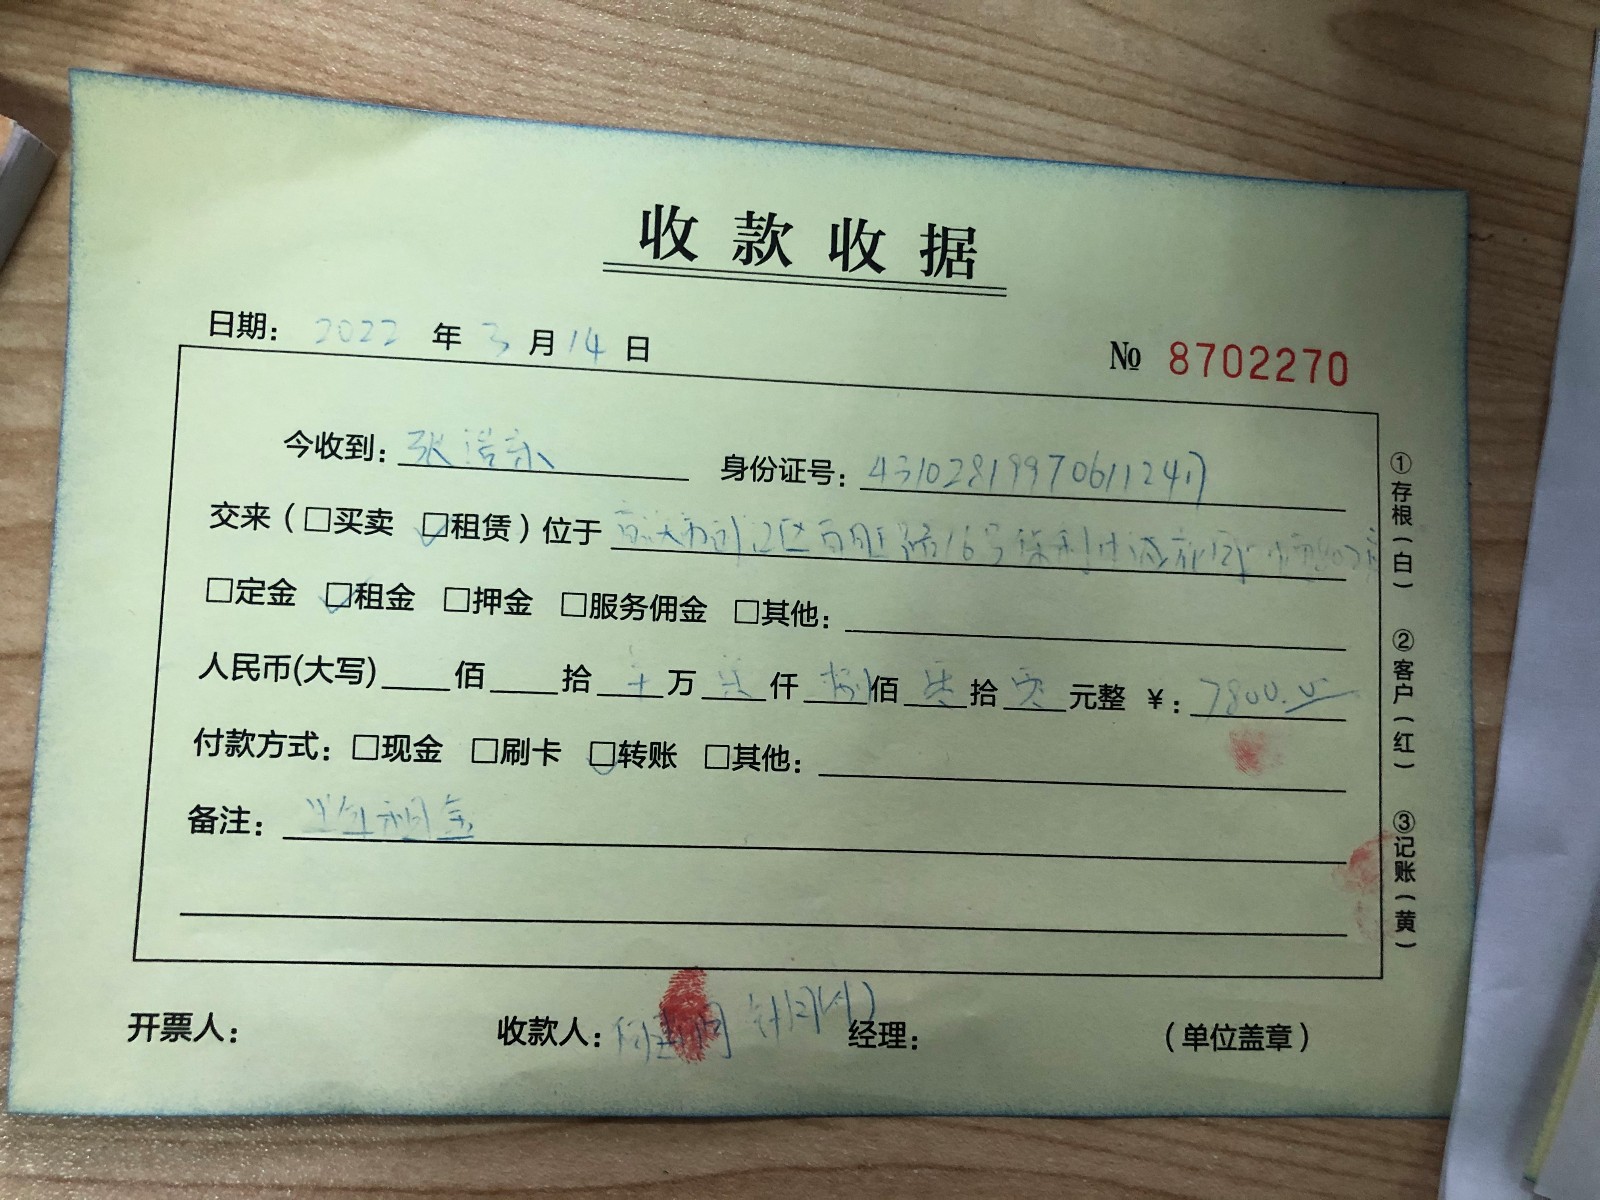 收款收据
日期： 2022 年 3 月 14 日
№ 8702270
今收到：张浩 身份证号：431028199706112417
交来（□买卖 ☑租赁）位于 16号保利
□定金 ☑租金 □押金 □服务佣金 □其他：
人民币(大写) 佰 拾 万 柒 仟 捌 佰 零 拾 零 元整 ￥：7800.00
付款方式：□现金 □刷卡 ☑转账 □其他：
备注：半年租金
开票人： 收款人： 经理： （单位盖章）
①存根（白） ②客户（红） ③记账（黄）